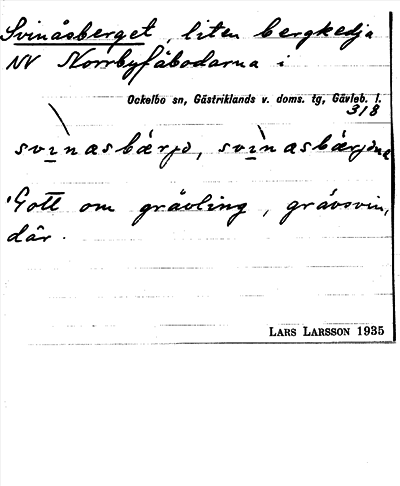 Svinåsberget, liten bergkedja
NV Norrbyfäbodarna i
Ockelbo sn, Gästriklands v. doms. tg, Gävleb. l.
318
svìnasbárjə, svìnasbárjəna
'Gott om grävling, grävsvin,
där.
LARS LARSSON 1935